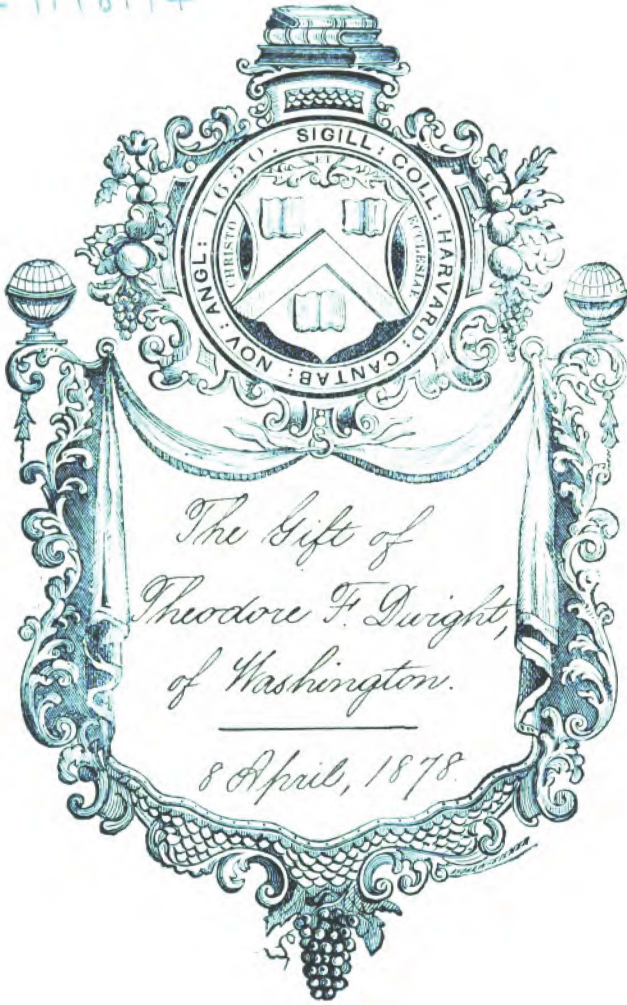 SIGILL: COLL: HARVARD: CANTAB: NOV: ANGL: 1650.
ET
CHRISTO
ECCLESIAE
The Gift of
Theodore F. Dwight,
of Washington.
8 April, 1878.